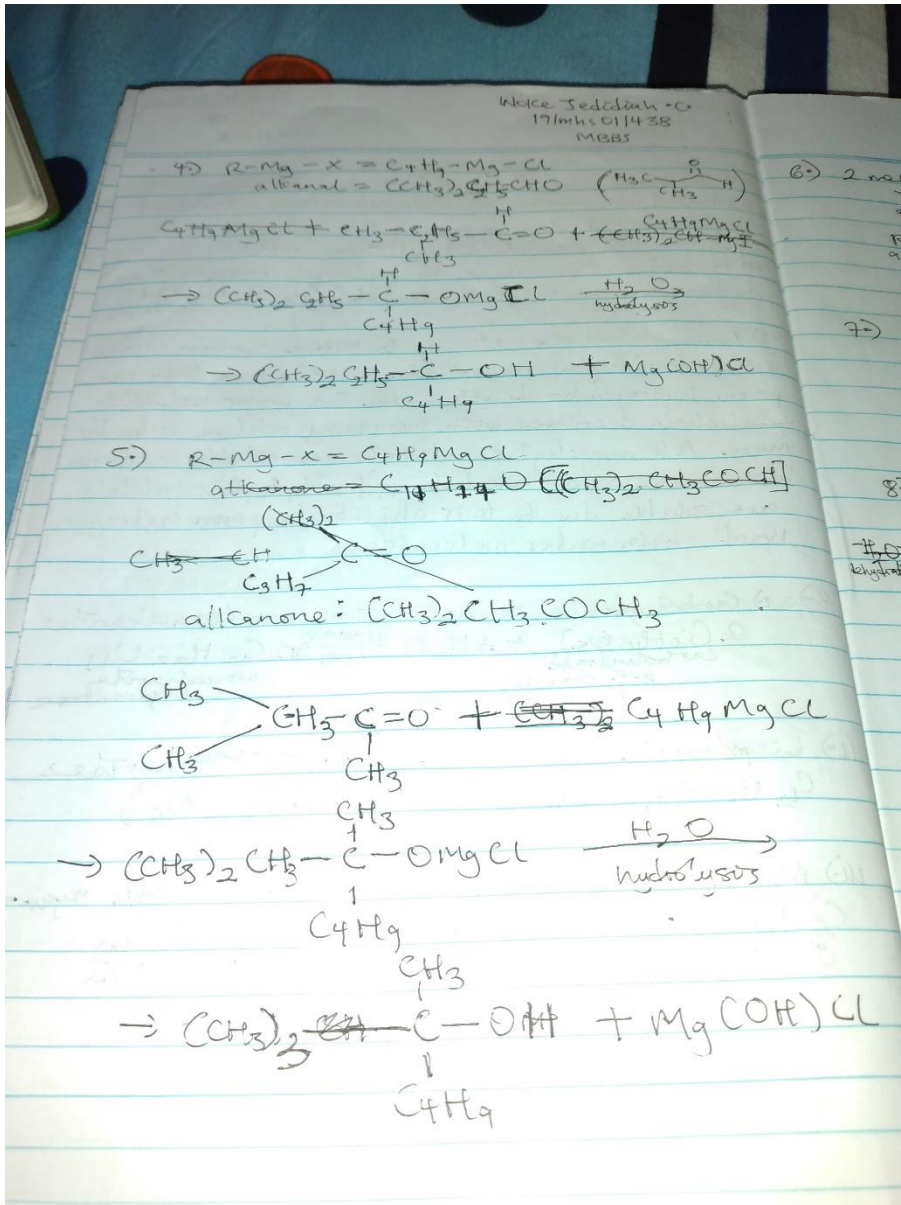 Woke Jedidiah .C.
19/mhs01/438
MBBS
4.) R-Mg-X = C4H9-Mg-Cl
alkanal = (CH3)2C2H5CHO (H3C CH3 O H)
H
C4H9MgCl + CH3-C2H5-C=O + C4H9MgCl
CH3
H
→ (CH3)2 C2H5-C-OMgCl H2O
hydrolysis
C4H9
H
→ (CH3)2 C2H5-C-OH + Mg(OH)Cl
C4H9
5.) R-Mg-X = C4H9MgCl
alkanone = C11H14O [(CH3)2.CH3COCH]
(CH3)2
CH3-CH C=O
C3H7
alkanone: (CH3)2CH3.COCH3
CH3
CH3-C=O + (CH3)2 C4H9MgCl
CH3
CH3
CH3
→ (CH3)2CH3-C-OMgCl H2O
hydrolysis
C4H9
CH3
→ (CH3)3-C-OH + Mg(OH)Cl
C4H9
6.) 2
7.)
8
H2O